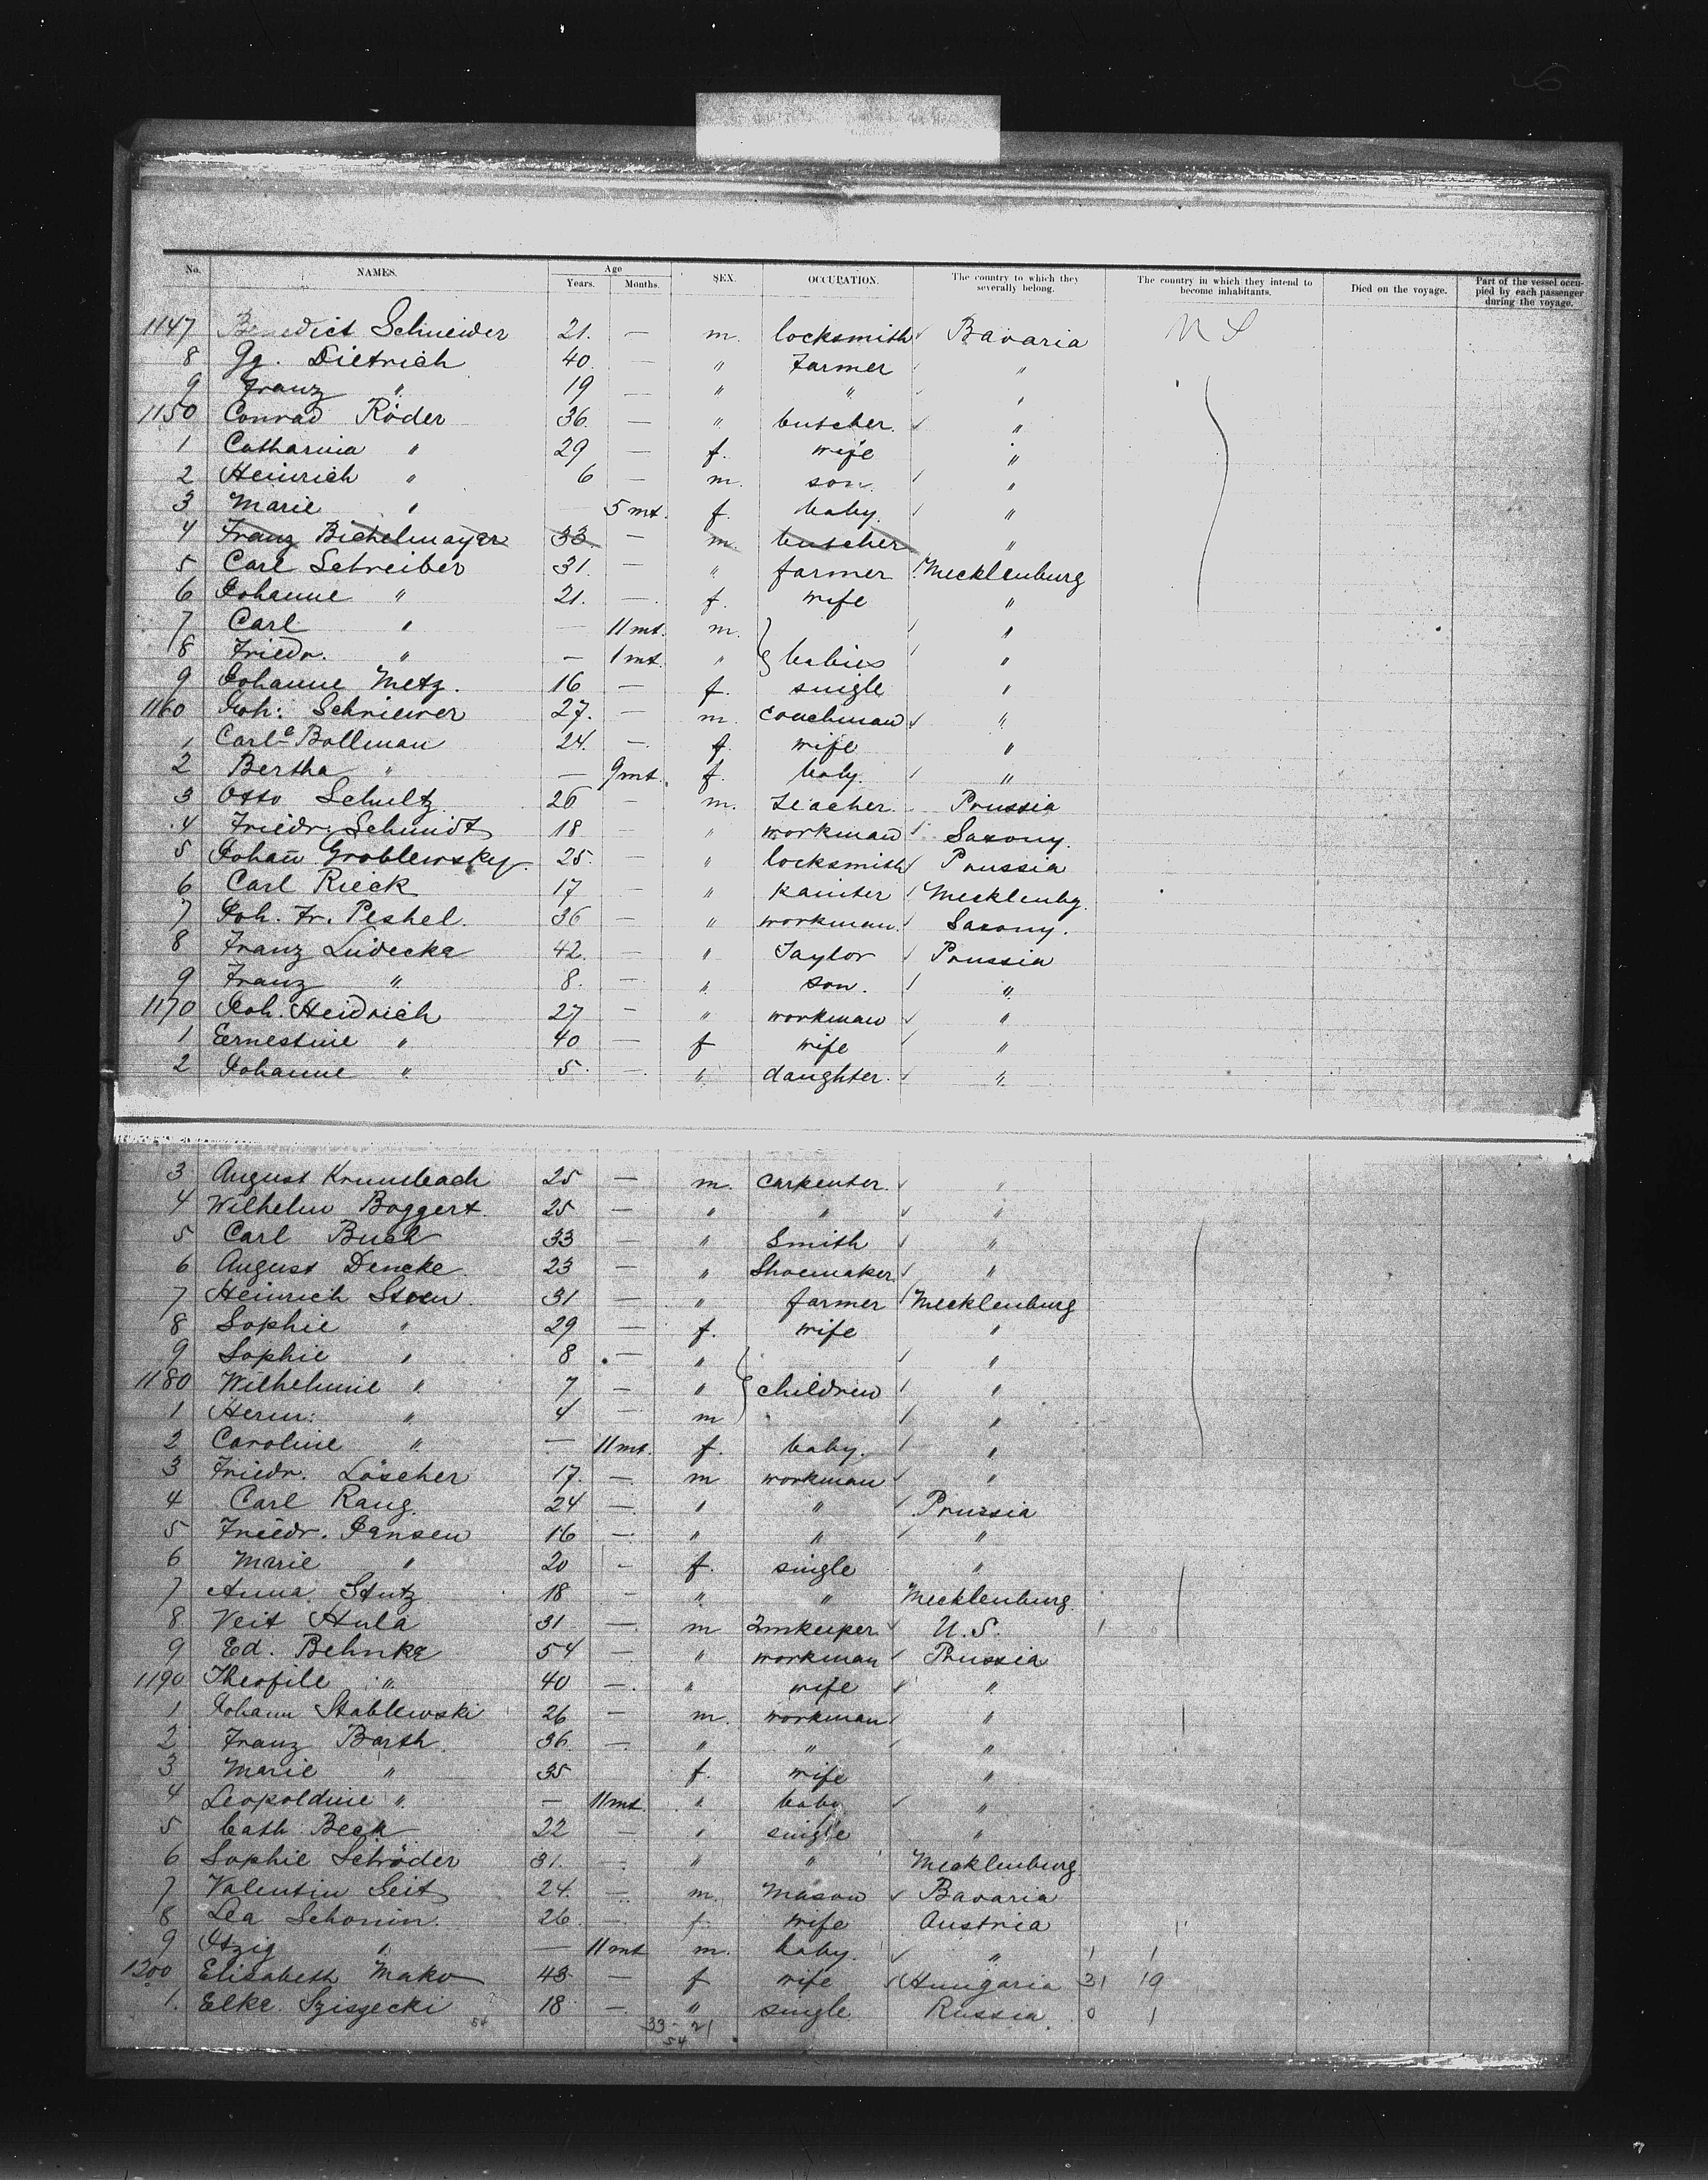 No. NAMES. Age Years. Months. SEX. OCCUPATION. The country to which they severally belong. The country in which they intend to become inhabitants. Died on the voyage. Part of the vessel occupied by each passenger during the voyage.
1147 Benedict Schneider 21. — m. locksmith Bavaria
8 Gg. Dietrich 40. — " Farmer "
9 Franz " 19 — " " "
1150 Conrad Röder 36. — " butscher. "
1 Catharina " 29 — f. wife "
2 Heinrich " 6 — m. son. "
3 Marie " 5 mt. f. baby. "
4 Franz Bichelmayer 33 — m. butscher "
5 Carl Schreiber 31. — " farmer Mecklenburg
6 Johanne " 21. — f. wife "
7 Carl " — 11 mt. m. "
8 Friedr. " — 1 mt. " babies "
9 Johanne Metz. 16 — f. single "
1160 Joh: Schriewer 27. — m. coachman "
1 Carle Bollman 24. — f. wife "
2 Bertha " — 9 mt. f. baby. "
3 Otto Schultz 26 — m. teacher. Prussia
4 Friedr. Schmidt 18 — " workman Saxony.
5 Johan̄ Groblewsky. 25. — " locksmith Prussia
6 Carl Rieck 17 — " painter Mecklenbg.
7 Joh. Fr. Peshel. 36 — " workman. Saxony.
8 Franz Lüdecke 42. — " Taylor Prussia
9 Franz " 8. — " son. "
1170 Joh. Heidrich 27 — " workman "
1 Ernestine " 40 — f wife "
2 Johanne " 5. — " daughter. "
3 August Krumbach 25 — m. carpenter. "
4 Wilhelm Boggert. 25 — " " "
5 Carl Buck 33 — " Smith "
6 August Dencke. 23 — " Shoemaker "
7 Heinrich Stoen. 31 — " farmer Mecklenburg
8 Sophie " 29 — f. wife "
9 Sophie " 8 — " "
1180 Wilhelmine " 7 — " children "
1 Herm: " 4 — m "
2 Caroline " — 11 mt. f. baby. "
3 Friedr. Löscher 17. — m workman "
4 Carl Rang. 24 — " " Prussia
5 Friedr. Jensen 16 — " " "
6 Marie " 20 — f. single "
7 Anna Stutz 18 — " " Mecklenburg.
8 Veit Hula 31 — m Innkeeper U.S. 1
9 Ed. Behnke 54 — " workman Prussia
1190 Theofile " 40 — " wife "
1 Johann Stablewski 26 — m. workman "
2 Franz Barth. 36 — " " "
3 Marie " 35 f. wife "
4 Leopoldine " — 11 mt. " baby "
5 Cath. Beck 22 — " single "
6 Sophie Schröder 31. — " " Mecklenburg
7 Valentin Seit 24. — m. Mason Bavaria
8 Lea Schonin. 26 — f. wife Austria
9 Itzig " — 11 mt m. baby. " 1 1
1200 Elisabeth Mako 43 — f wife Hungaria 31 19
1. Elke Sziszecki 18 — " single Russia. 0 1
54 33 - 21
54